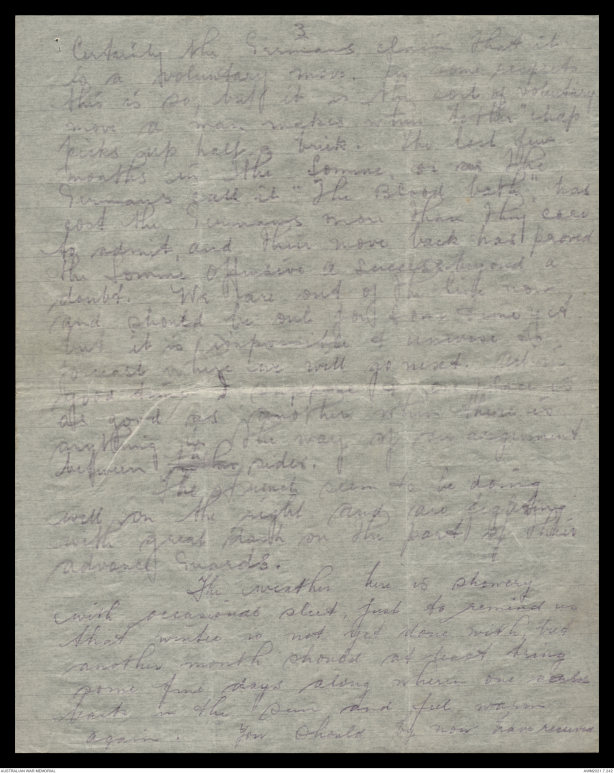 3
Certainly the Germans claim that it
is a voluntary move. In some respects
this is so, but it is the sort of voluntary
move a man makes when tother chap
picks up half a brick. The last few
months in the Somme, or as the
Germans call it "The Blood bath", has
cost the Germans more than they care
to admit, and their move back has proved
the Somme Offensive a success beyond a
doubt. We are out of the line now
and should be out for some time yet
but it is impossible
to where we will go next.
one place is
as good as another when there is
anything in the way of an argument
between sides.
The French seem to be doing
well on the right and are fighting
with great dash on the part of their
advance Guards.
The weather here is showery
with occasional sleet, just to remind us
that winter is not yet done with, but
another month should at least bring
some fine days along where one can
bask in the sun and feel warm
again. You should by now have received
AUSTRALIAN WAR MEMORIAL